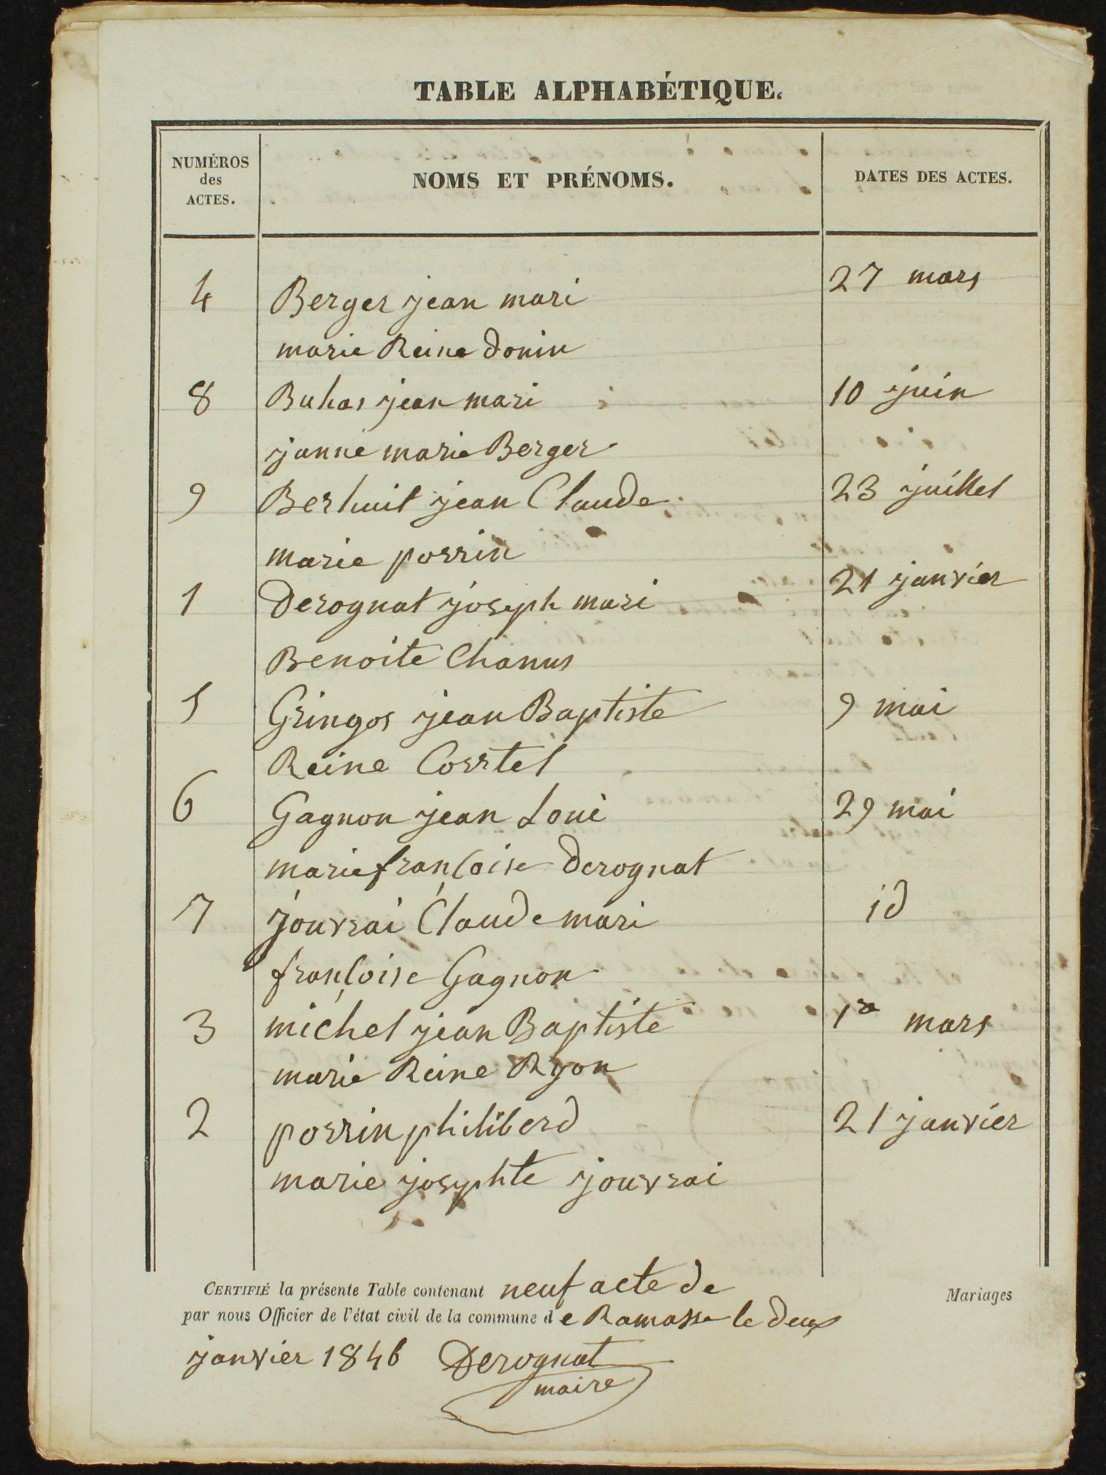 TABLE ALPHABÉTIQUE.
NUMÉROS des ACTES.
NOMS ET PRÉNOMS.
DATES DES ACTES.
4 Berger jean mari 27 mars
marie Reine donin
8 Buhas jean mari 10 juin
janne marie Berger
9 Berhuit jean Claude 23 juillet
marie porrin
1 Derognat joseph mari 21 janvier
Benoite Chanus
5 Gringos jean Baptiste 9 mai
Reine Corrtel
6 Gagnon jean Loui 29 mai
marie françoise derognat
7 jouvrai Claude mari id
françoise Gagnon
3 michel jean Baptiste 1er mars
marie Reine Ryon
2 porrin philiberd 21 janvier
marie josephte jouvrai
CERTIFIÉ la présente Table contenant neuf acte de
Mariages
par nous Officier de l'état civil de la commune de Ramasse le deux
janvier 1846 Derognat
maire